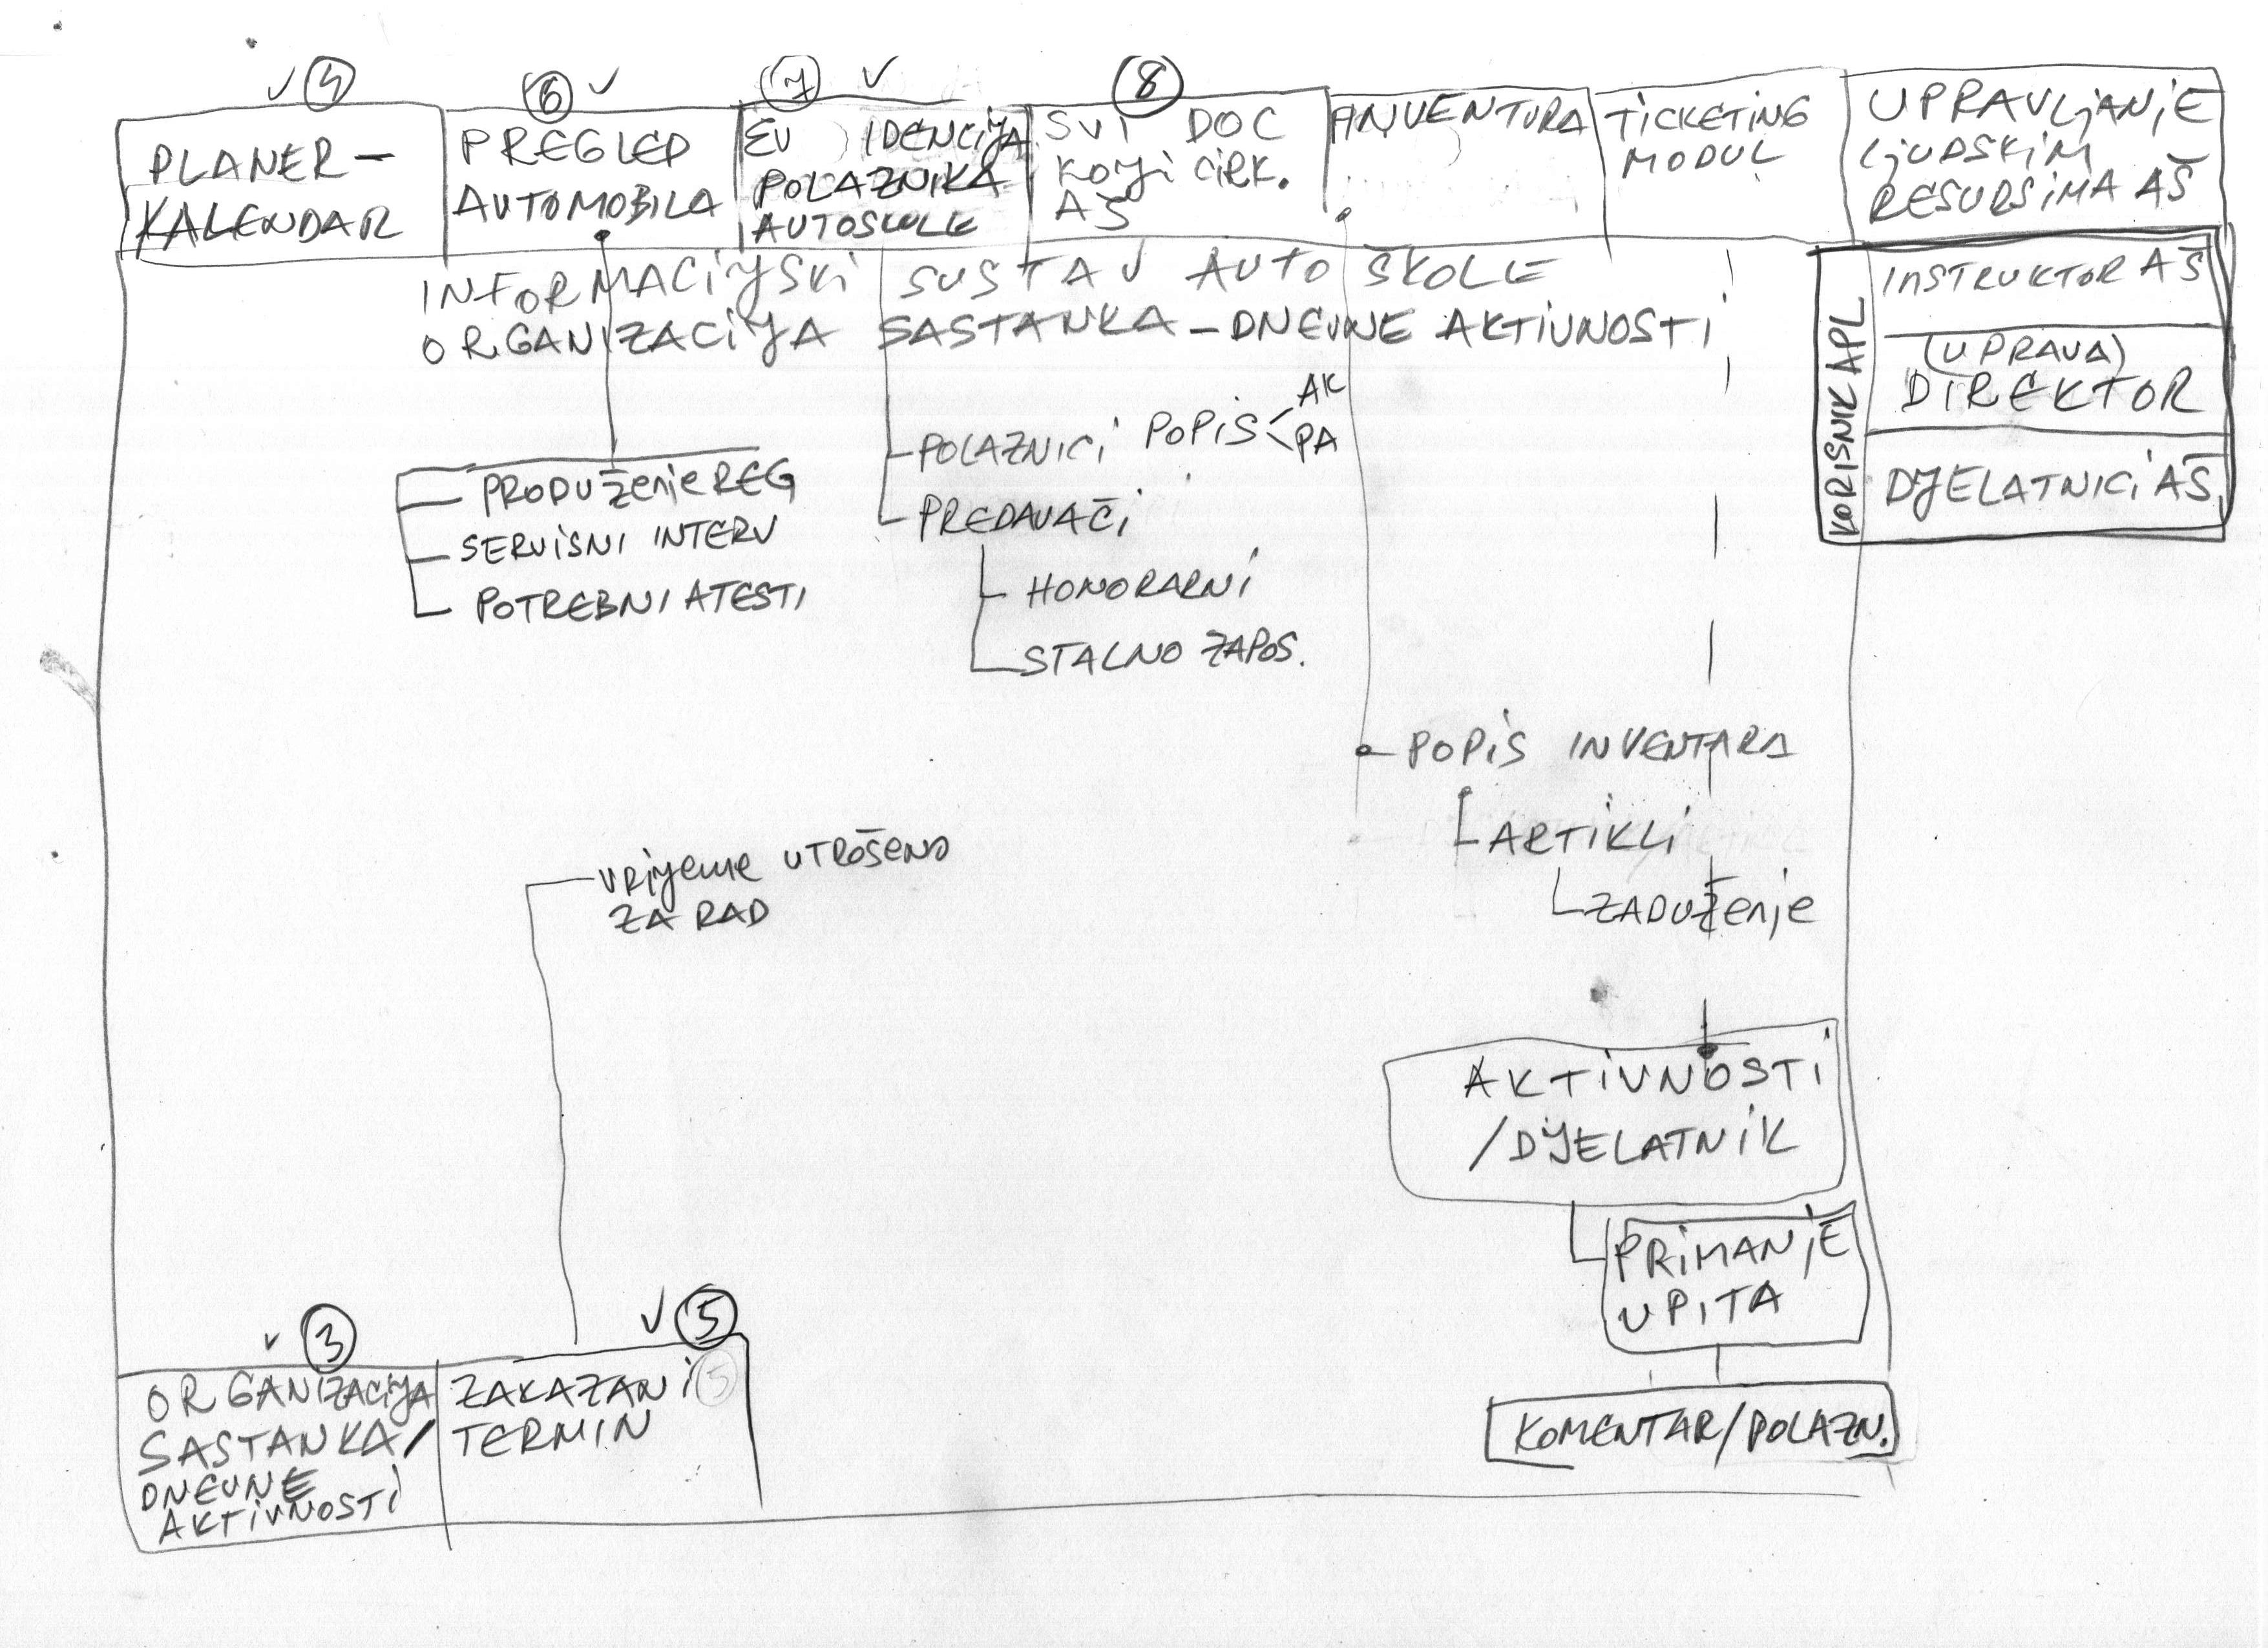 ✓ 4
PLANER -
KALENDAR
6 ✓
PREGLED
AUTOMOBILA
7 ✓
EVIDENCIJA
POLAZNIKA
AUTOŠKOLE
8
SVI DOC
KOJI CIRK.
AŠ
INVENTURA
TICKETING
MODUL
UPRAVLJANJE
LJUDSKIM
RESURSIMA AŠ
INFORMACIJSKI SUSTAV AUTO ŠKOLE
ORGANIZACIJA SASTANKA - DNEVNE AKTIVNOSTI
KORISNIK APL
INSTRUKTOR AŠ
(UPRAVA)
DIREKTOR
DJELATNICI AŠ
PRODUŽENJE REG
SERVISNI INTERV
POTREBNI ATESTI
POLAZNICI POPIS < AK
PA
PREDAVAČI
HONORARNI
STALNO ZAPOS.
POPIS INVENTARA
ARTIKLI
ZADUŽENJE
VRIJEME UTROŠENO
ZA RAD
AKTIVNOSTI
/DJELATNIK
PRIMANJE
UPITA
KOMENTAR/POLAZN.
✓ 3
ORGANIZACIJA
SASTANKA/
DNEVNE
AKTIVNOSTI
✓ 5
ZAKAZANI 5
TERMIN